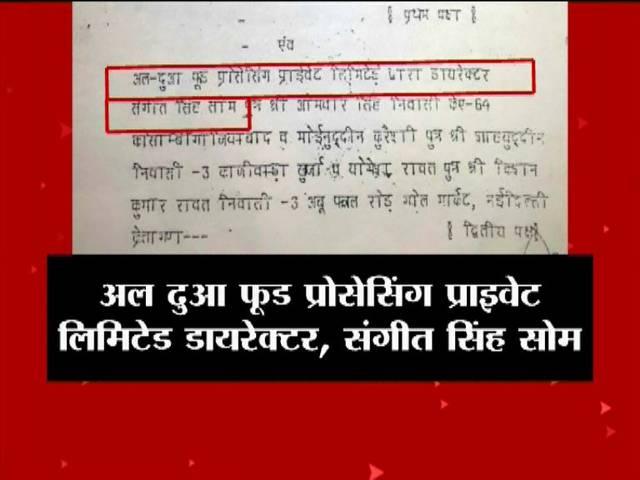 ॥ प्रथम पक्ष
- एंव -
अल-दुआ फूड प्रोसेसिंग प्राईवेट लिमिटेड डायरेक्टर
संगीत सिंह सोम पुत्र श्री सिंह निवासी के-64
व मोईनुद्दीन कुरैशी पुत्र श्री
निवासी -3 रावत पुत्र श्री किशन
कुमार रावत निवासी -3 अबू रोड़ गोल मार्केट, नईदिल्ली
क्रेतागण--- ॥ द्वितीय पक्ष ॥
अल दुआ फूड प्रोसेसिंग प्राइवेट
लिमिटेड डायरेक्टर, संगीत सिंह सोम